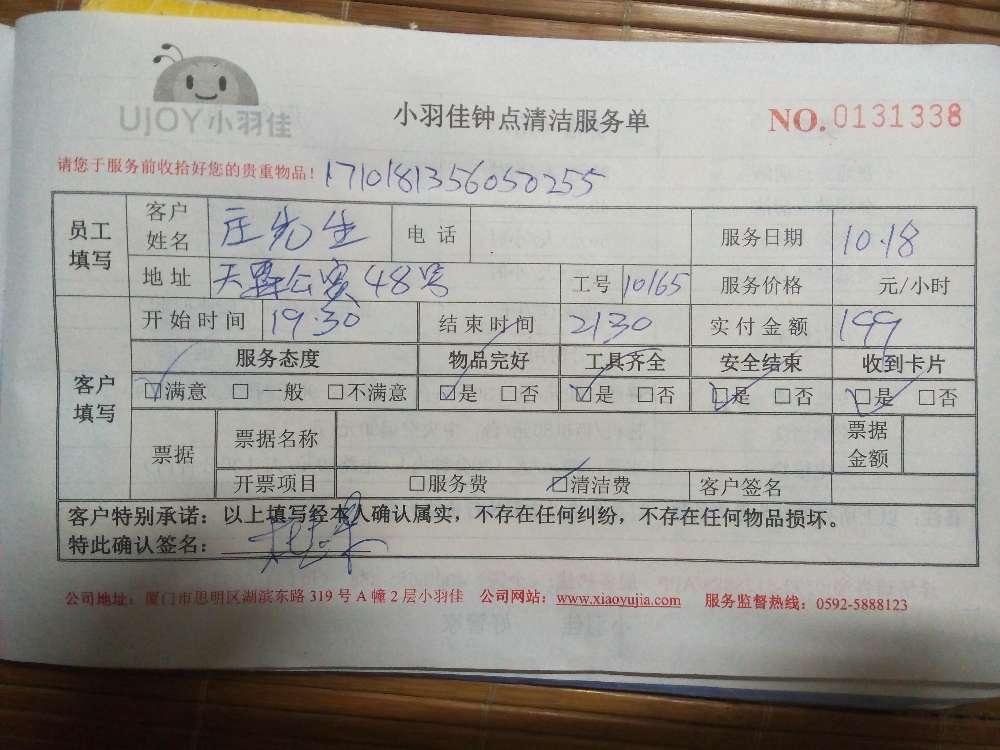 UJOY小羽佳
小羽佳钟点清洁服务单
NO.0131338
请您于服务前收拾好您的贵重物品！1710181356050255
员工填写 客户姓名 庄先生 电话 服务日期 10.18
地址 48号 工号 10165 服务价格 元/小时
客户填写 开始时间 19.30 结束时间 2130 实付金额 199
服务态度 物品完好 工具齐全 安全结束 收到卡片
☑满意 □ 一般 □不满意 ☑是 □否 ☑是 □否 ☑是 □否 ☑是 □否
票据 票据名称 票据金额
开票项目 □服务费 ☑清洁费 客户签名
客户特别承诺：以上填写经本人确认属实，不存在任何纠纷，不存在任何物品损坏。
特此确认签名：
公司地址：厦门市思明区湖滨东路 319 号 A 幢 2 层小羽佳 公司网站：www.xiaoyujia.com 服务监督热线：0592-5888123